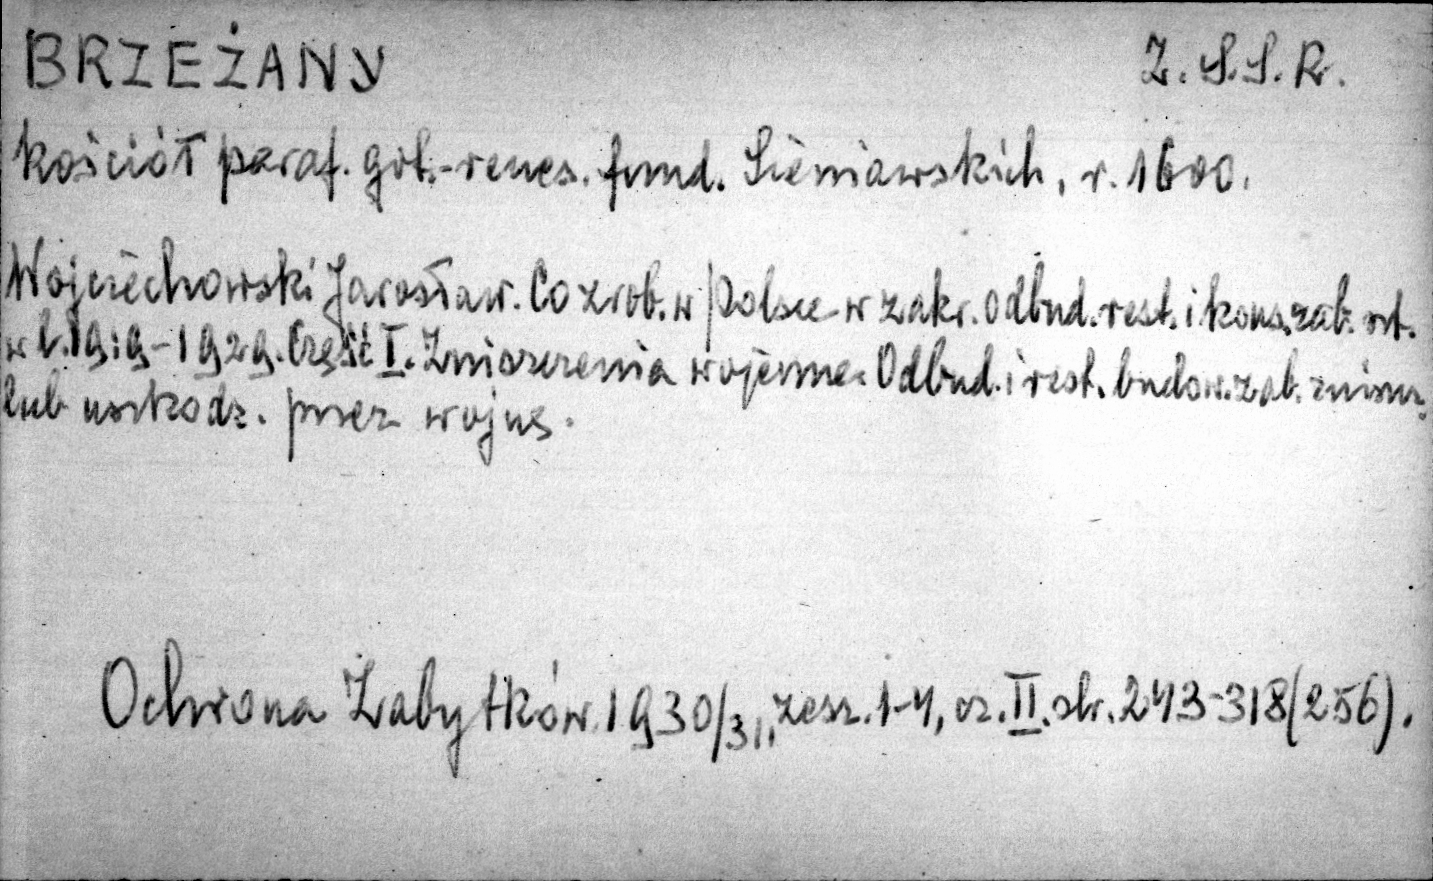 BRZEŻANY Z.S.S.R.
kościół paraf. got.-renes. fund. Sieniawskich, r. 1600.
Wojciechowski Jarosław. Co zrob. w Polsce w zakr. odbud. rest. i kons. zab. szt.
w l. 1919-1929. Część I. Zniszczenia wojenne. Odbud. i rest. budow. zab. zniszcz.
lub uszkodz. przez wojnę.
Ochrona Zabytków 1930/31, zesz. 1-4, cz. II. str. 243-318 (256).